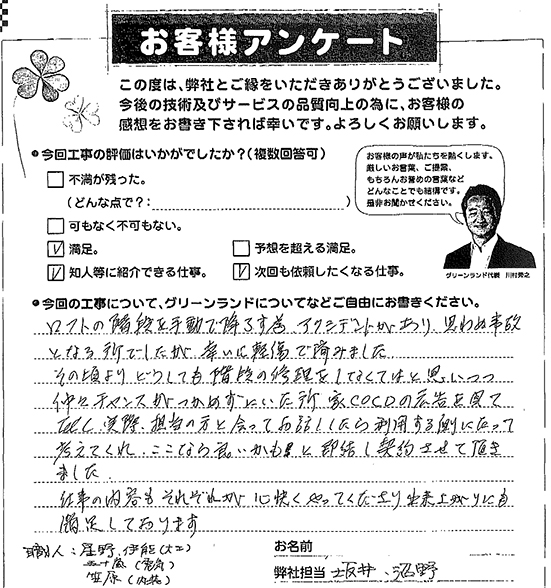 お客様アンケート
この度は、弊社とご縁をいただきありがとうございました。
今後の技術及びサービスの品質向上の為に、お客様の
感想をお書き下されば幸いです。よろしくお願いします。
●今回工事の評価はいかがでしたか?(複数回答可)
不満が残った。
(どんな点で?: )
可もなく不可もない。
満足。
予想を超える満足。
知人等に紹介できる仕事。
次回も依頼したくなる仕事。
お客様の声が私たちを動くします。
厳しいお言葉、ご提案、
もちろんお誉めの言葉など
どんなことでも結構です。
是非お聞かせください。
グリーンランド代表 川村勢之
●今回の工事について、グリーンランドについてなどご自由にお書きください。
ロフトの階段を手動で降ろす為 アクシデントがあり、思わぬ事故
となる所でしたが 幸いに軽傷で済みました
その頃より どうしても階段の修理をしなくてはと思いつつ
仲々チャンスがつかめずにいた所 家COCOの広告を見て
TELし 実際、担当の方と会ってお話ししたら利用する側にたって
考えてくれ、ここなら良いかも!!と即結し契約させて頂き
ました。
仕事の内容も それぞれが 心快くやってくださり出来上がりにも
満足しております
職人: 星野、伊能(大工)
(電気)
笠原(内装)
お名前
弊社担当 坂井、沼野